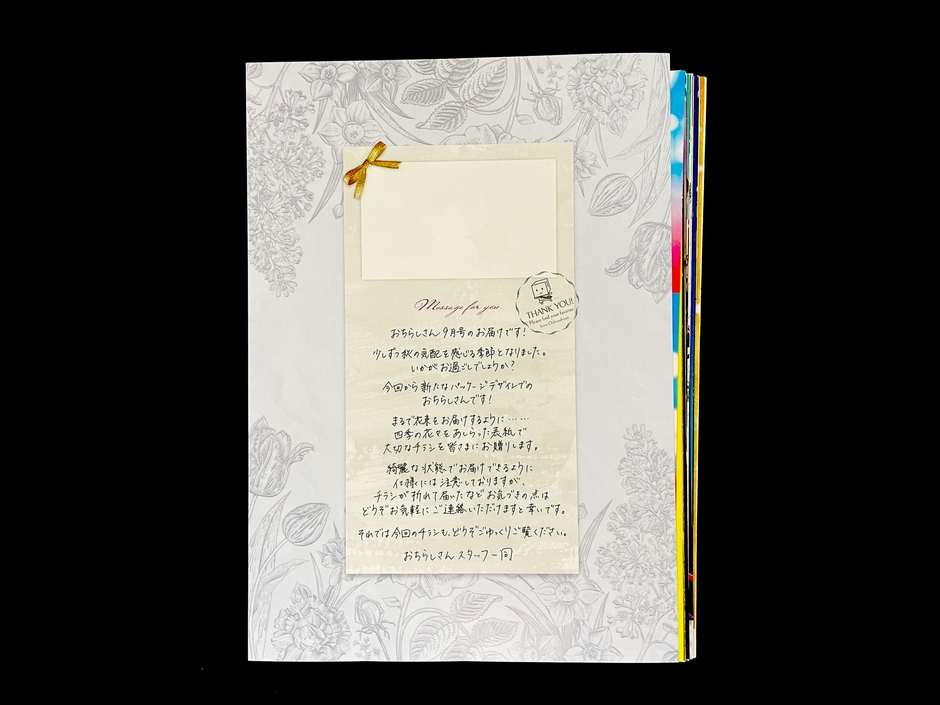 THANK YOU!
Please find your favorite
from Ochirashisan.
Message for you.
おちらしさん9月号のお届けです!
少しずつ秋の気配を感じる季節となりました。
いかがお過ごしでしょうか?
今回から新たなパッケージデザインでの
おちらしさんです!
まるで花束をお届けするように……
四季の花々をあしらった表紙で
大切なチラシを皆さまにお贈りします。
綺麗な状態でお届けできるように
仕様には注意しておりますが、
チラシが折れて届いたなどお気づきの点は
どうぞお気軽にご連絡いただけますと幸いです。
それでは今回のチラシも、どうぞごゆっくりご覧ください。
おちらしさんスタッフ一同